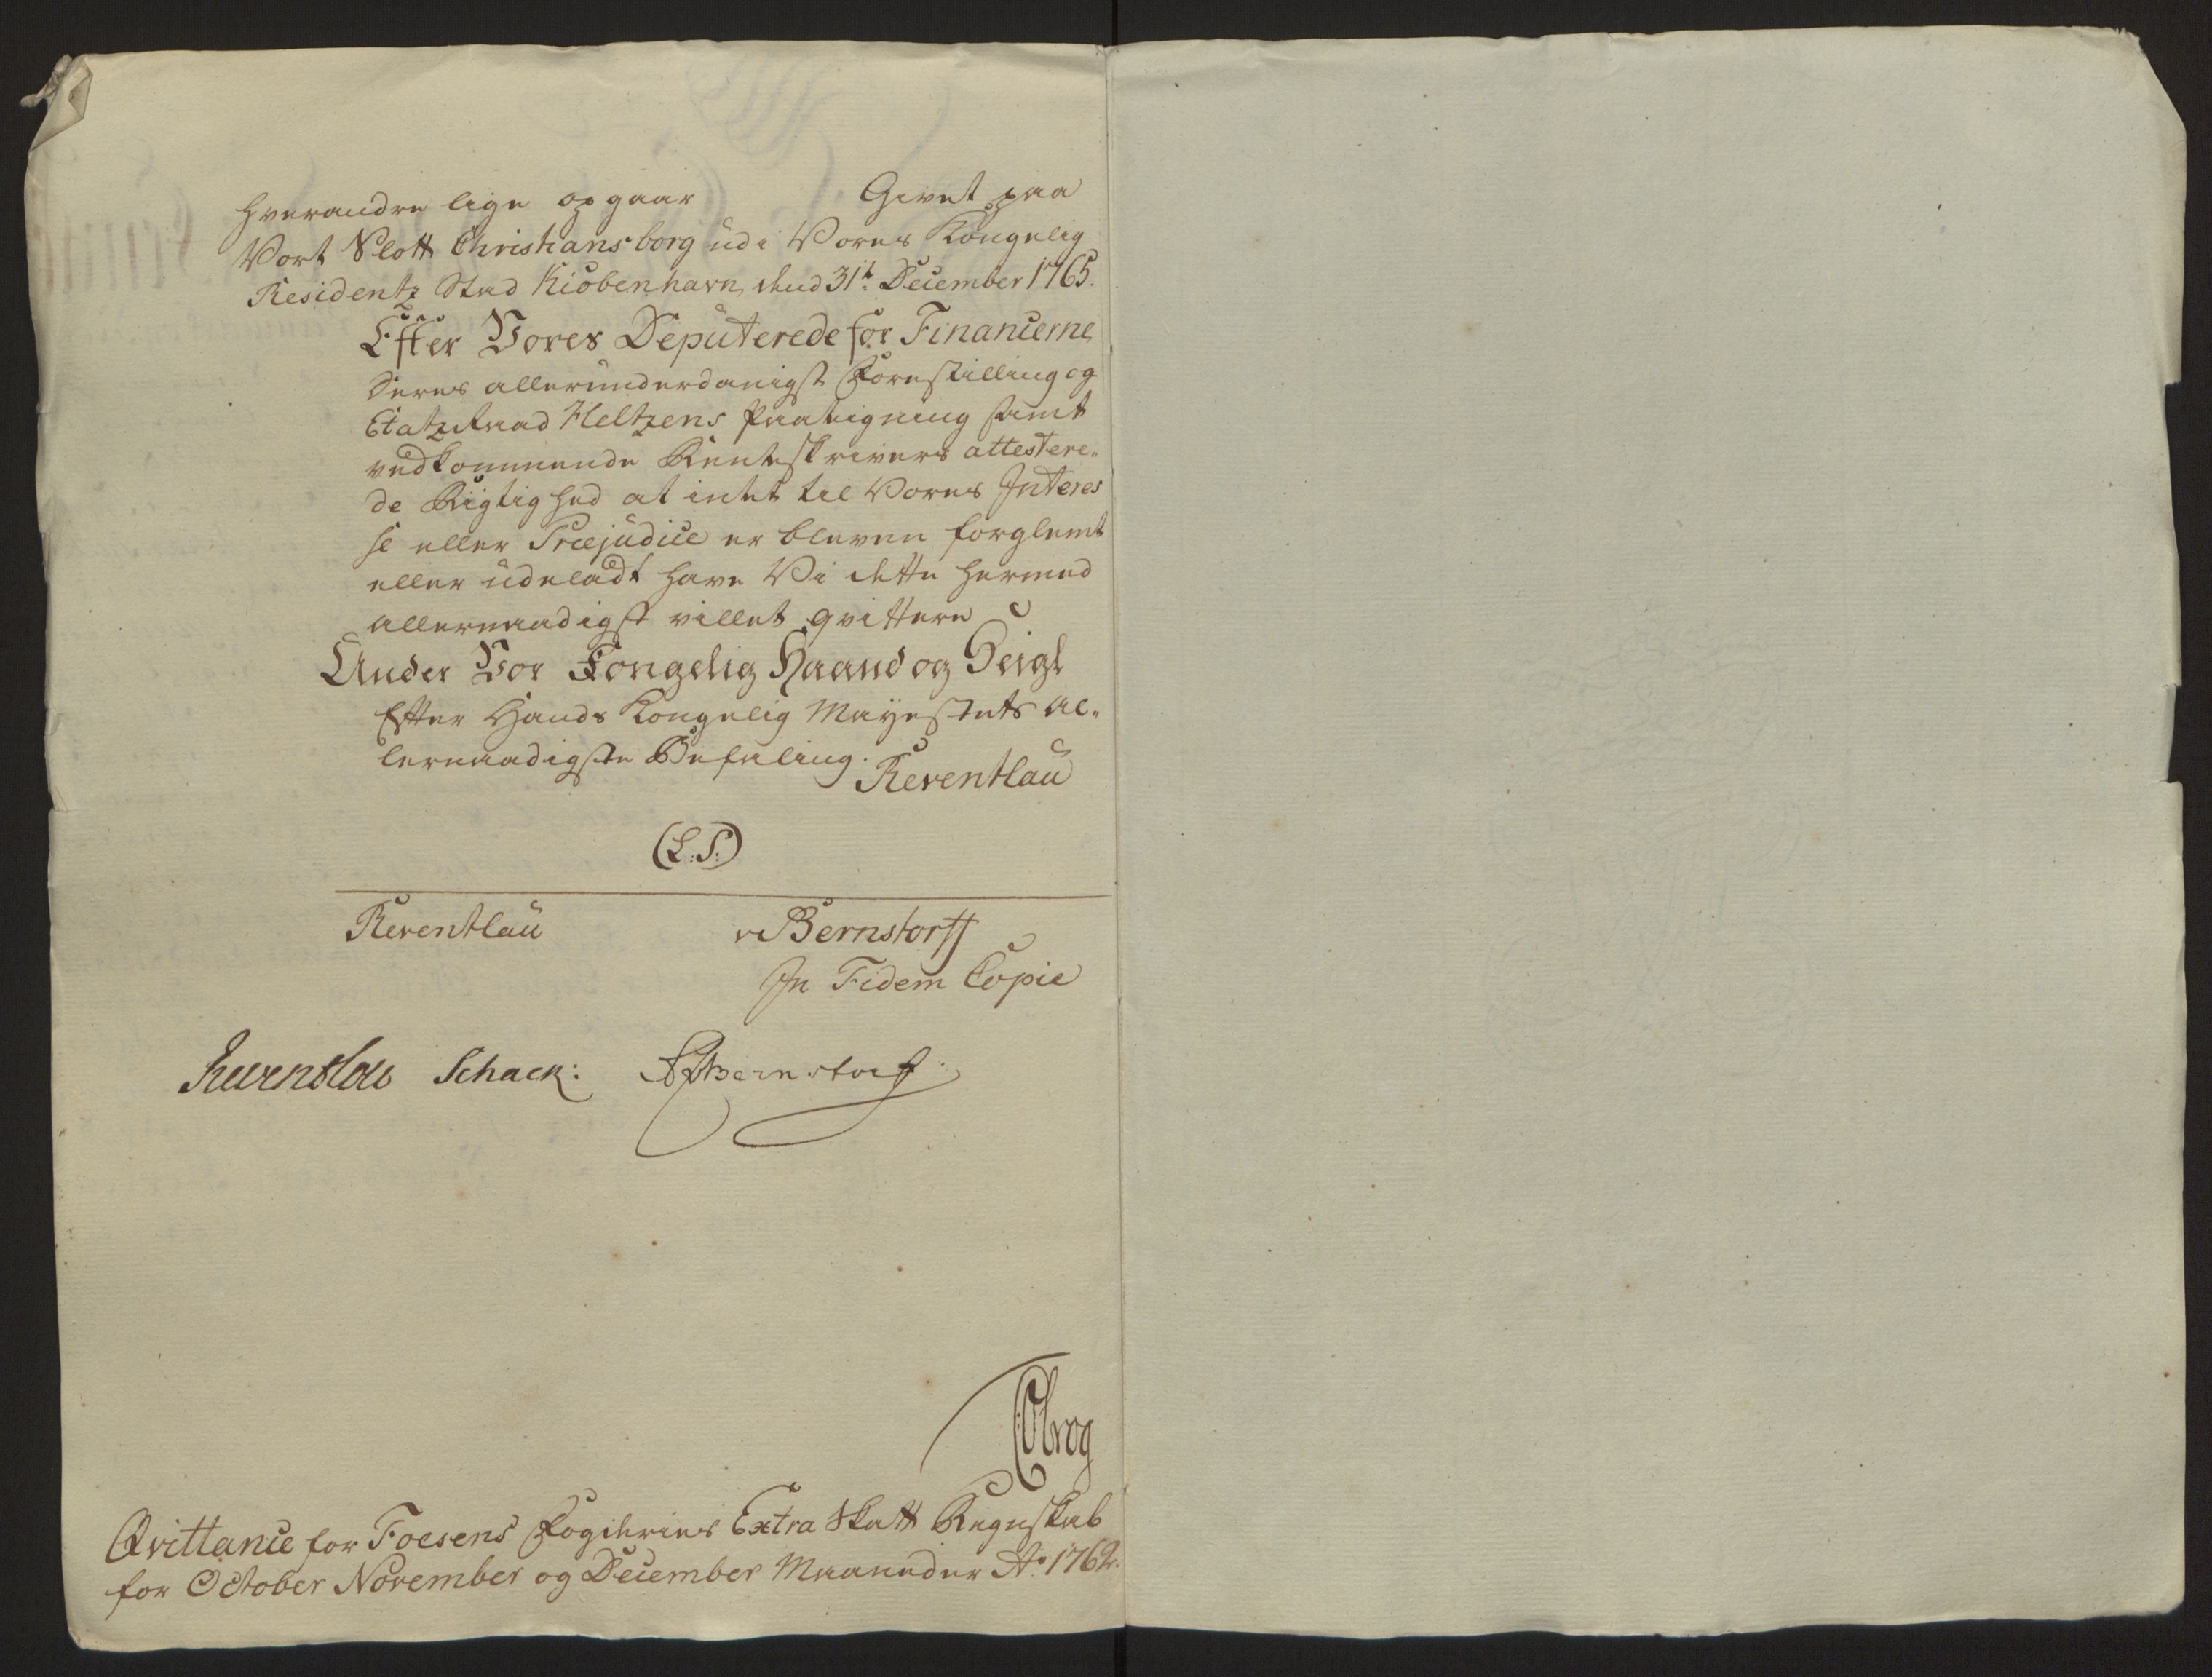 hverandre lige opgaar Givet paa
Vort Slott Christiansborg udi Vores Kongelig
Residentz Stad Kiöbenhavn, dend 31t. December 1765.
Efter Vores Deputerede for Financerne
Deres allerunderdanigst Forestilling og
Etatz Raad Heltzens Paategning samt
vedkommende Renteskrivers attestere„
de Rigtighed at intet til Vores Interes
se eller Præjudice er bleven forglemt
eller udeladt have Vi dette hermed
allernaadigst villet qvittere
Under Vor Kongelig Haand og Seigl
Efter Hands Kongelig Mayestets al„
lernaadigste Befaling.
Reventlau
(L.S.)
Reventlau v Bernstorff
In Fidem Copie
Reventlau Schack: Bernstorf
Qvittance for Foesens Fogderies Extra Skatt Regnskab
for October November og December Maaneder Ao. 1762.